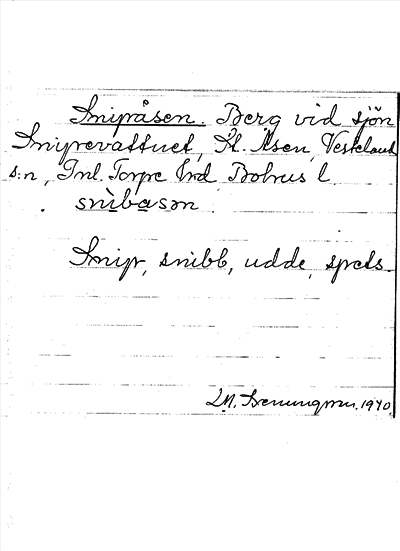 Snipåsen. Berg vid sjön
Snipevattnet, St. Åsen, Vesteland
s:n, Inl. Torpe hrd Bohus l.
snìbasən
Snip, snibb, udde, spets.
1940